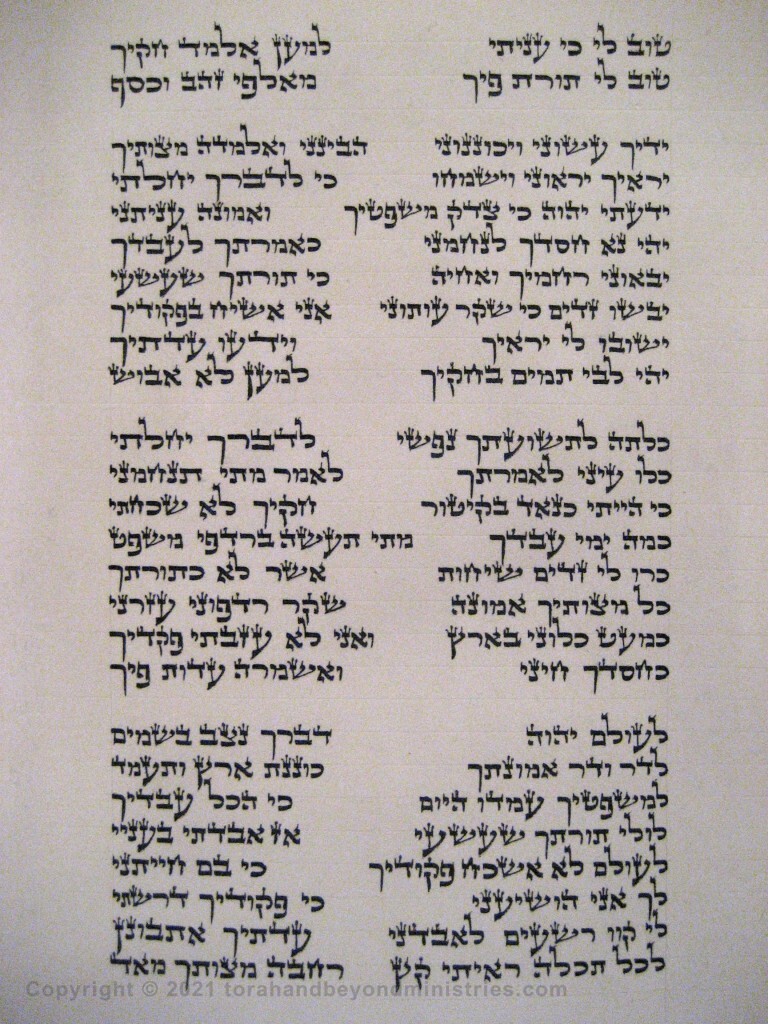 טוב לי כי עניתי למען אלמד חקיך
טוב לי תורת פיך מאלפי זהב וכסף
ידיך עשוני ויכוננוני הבינני ואלמדה מצותיך
יראיך יראוני וישמחו כי לדברך יחלתי
ידעתי יהוה כי צדק משפטיך ואמונה עניתני
יהי נא חסדך לנחמני כאמרתך לעבדך
יבאוני רחמיך ואחיה כי תורתך שעשעי
יבשו זדים כי שקר עותוני אני אשיח בפקודיך
ישובו לי יראיך וידעו עדתיך
יהי לבי תמים בחקיך למען לא אבוש
כלתה לתשועתך נפשי לדברך יחלתי
כלו עיני לאמרתך לאמר מתי תנחמני
כי הייתי כנאד בקיטור חקיך לא שכחתי
כמה ימי עבדך מתי תעשה ברדפי משפט
כרו לי זדים שיחות אשר לא כתורתך
כל מצותיך אמונה שקר רדפוני עזרני
כמעט כלוני בארץ ואני לא עזבתי פקדיך
כחסדך חייני ואשמרה עדות פיך
לעולם יהוה דברך נצב בשמים
לדר ודר אמונתך כוננת ארץ ותעמד
למשפטיך עמדו היום כי הכל עבדיך
לולי תורתך שעשעי אז אבדתי בעניי
לעולם לא אשכח פקודיך כי בם חייתני
לך אני הושיעני כי פקודיך דרשתי
לי קוו רשעים לאבדני עדתיך אתבונן
לכל תכלה ראיתי קץ רחבה מצותך מאד
Copyright © 2021 torahandbeyondministries.com